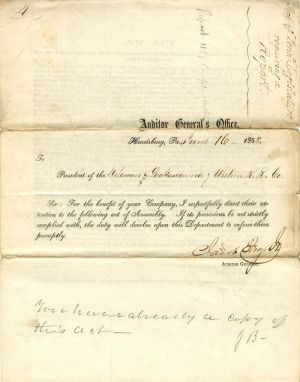 4
Act of Penn Legislature
requiring a
Report.
AN ACT
Auditor General's Office,
Harrisburg, Pa. June 16 1858.
To
President of the Delaware Lackawanna & Western R. R. Co.
Sir: For the benefit of your Company, I respectfully direct their at-
tention to the following act of Assembly. If its provisions be not strictly
complied with, the duty will devolve upon this Department to enforce them
promptly.
Jacob Fry Jr
Auditor General
You have already a copy of
this act
J B